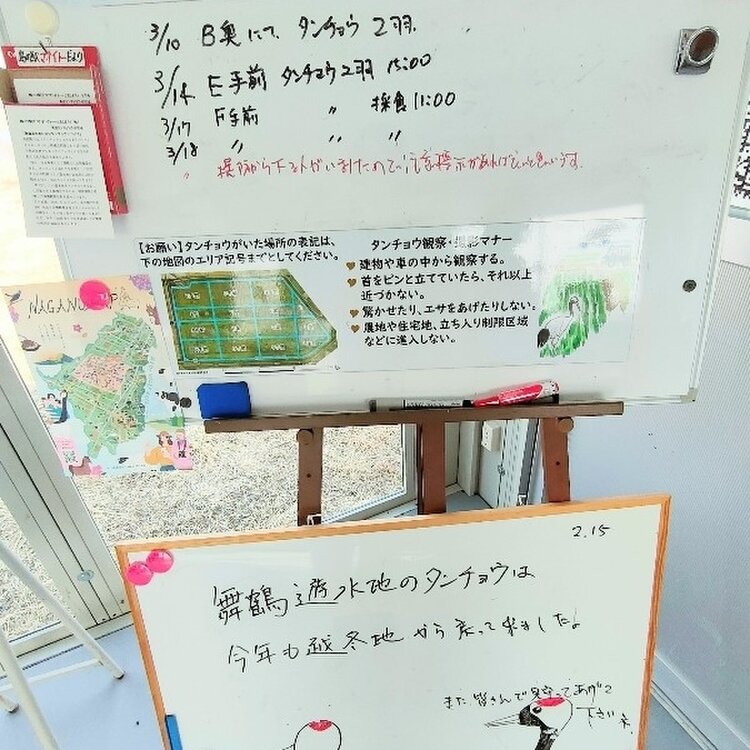 3/10 B奥にて、タンチョウ 2羽.
3/14 E手前 タンチョウ2羽 15:00
3/17 F手前 〃 採食 11:00
3/18 〃 〃 〃
【お願い】タンチョウがいた場所の表記は、
下の地図のエリア記号までとしてください。
タンチョウ観察・撮影マナー
建物や車の中から観察する。
首をピンと立てていたら、それ以上
近づかない。
驚かせたり、エサをあげたりしない。
農地や住宅地、立ち入り制限区域
などに進入しない。
NAGANUMA
2.15
舞鶴遊水地のタンチョウは
今年も越冬地から戻って来ましたよ
また皆さんで見守ってあげて
下さいネ